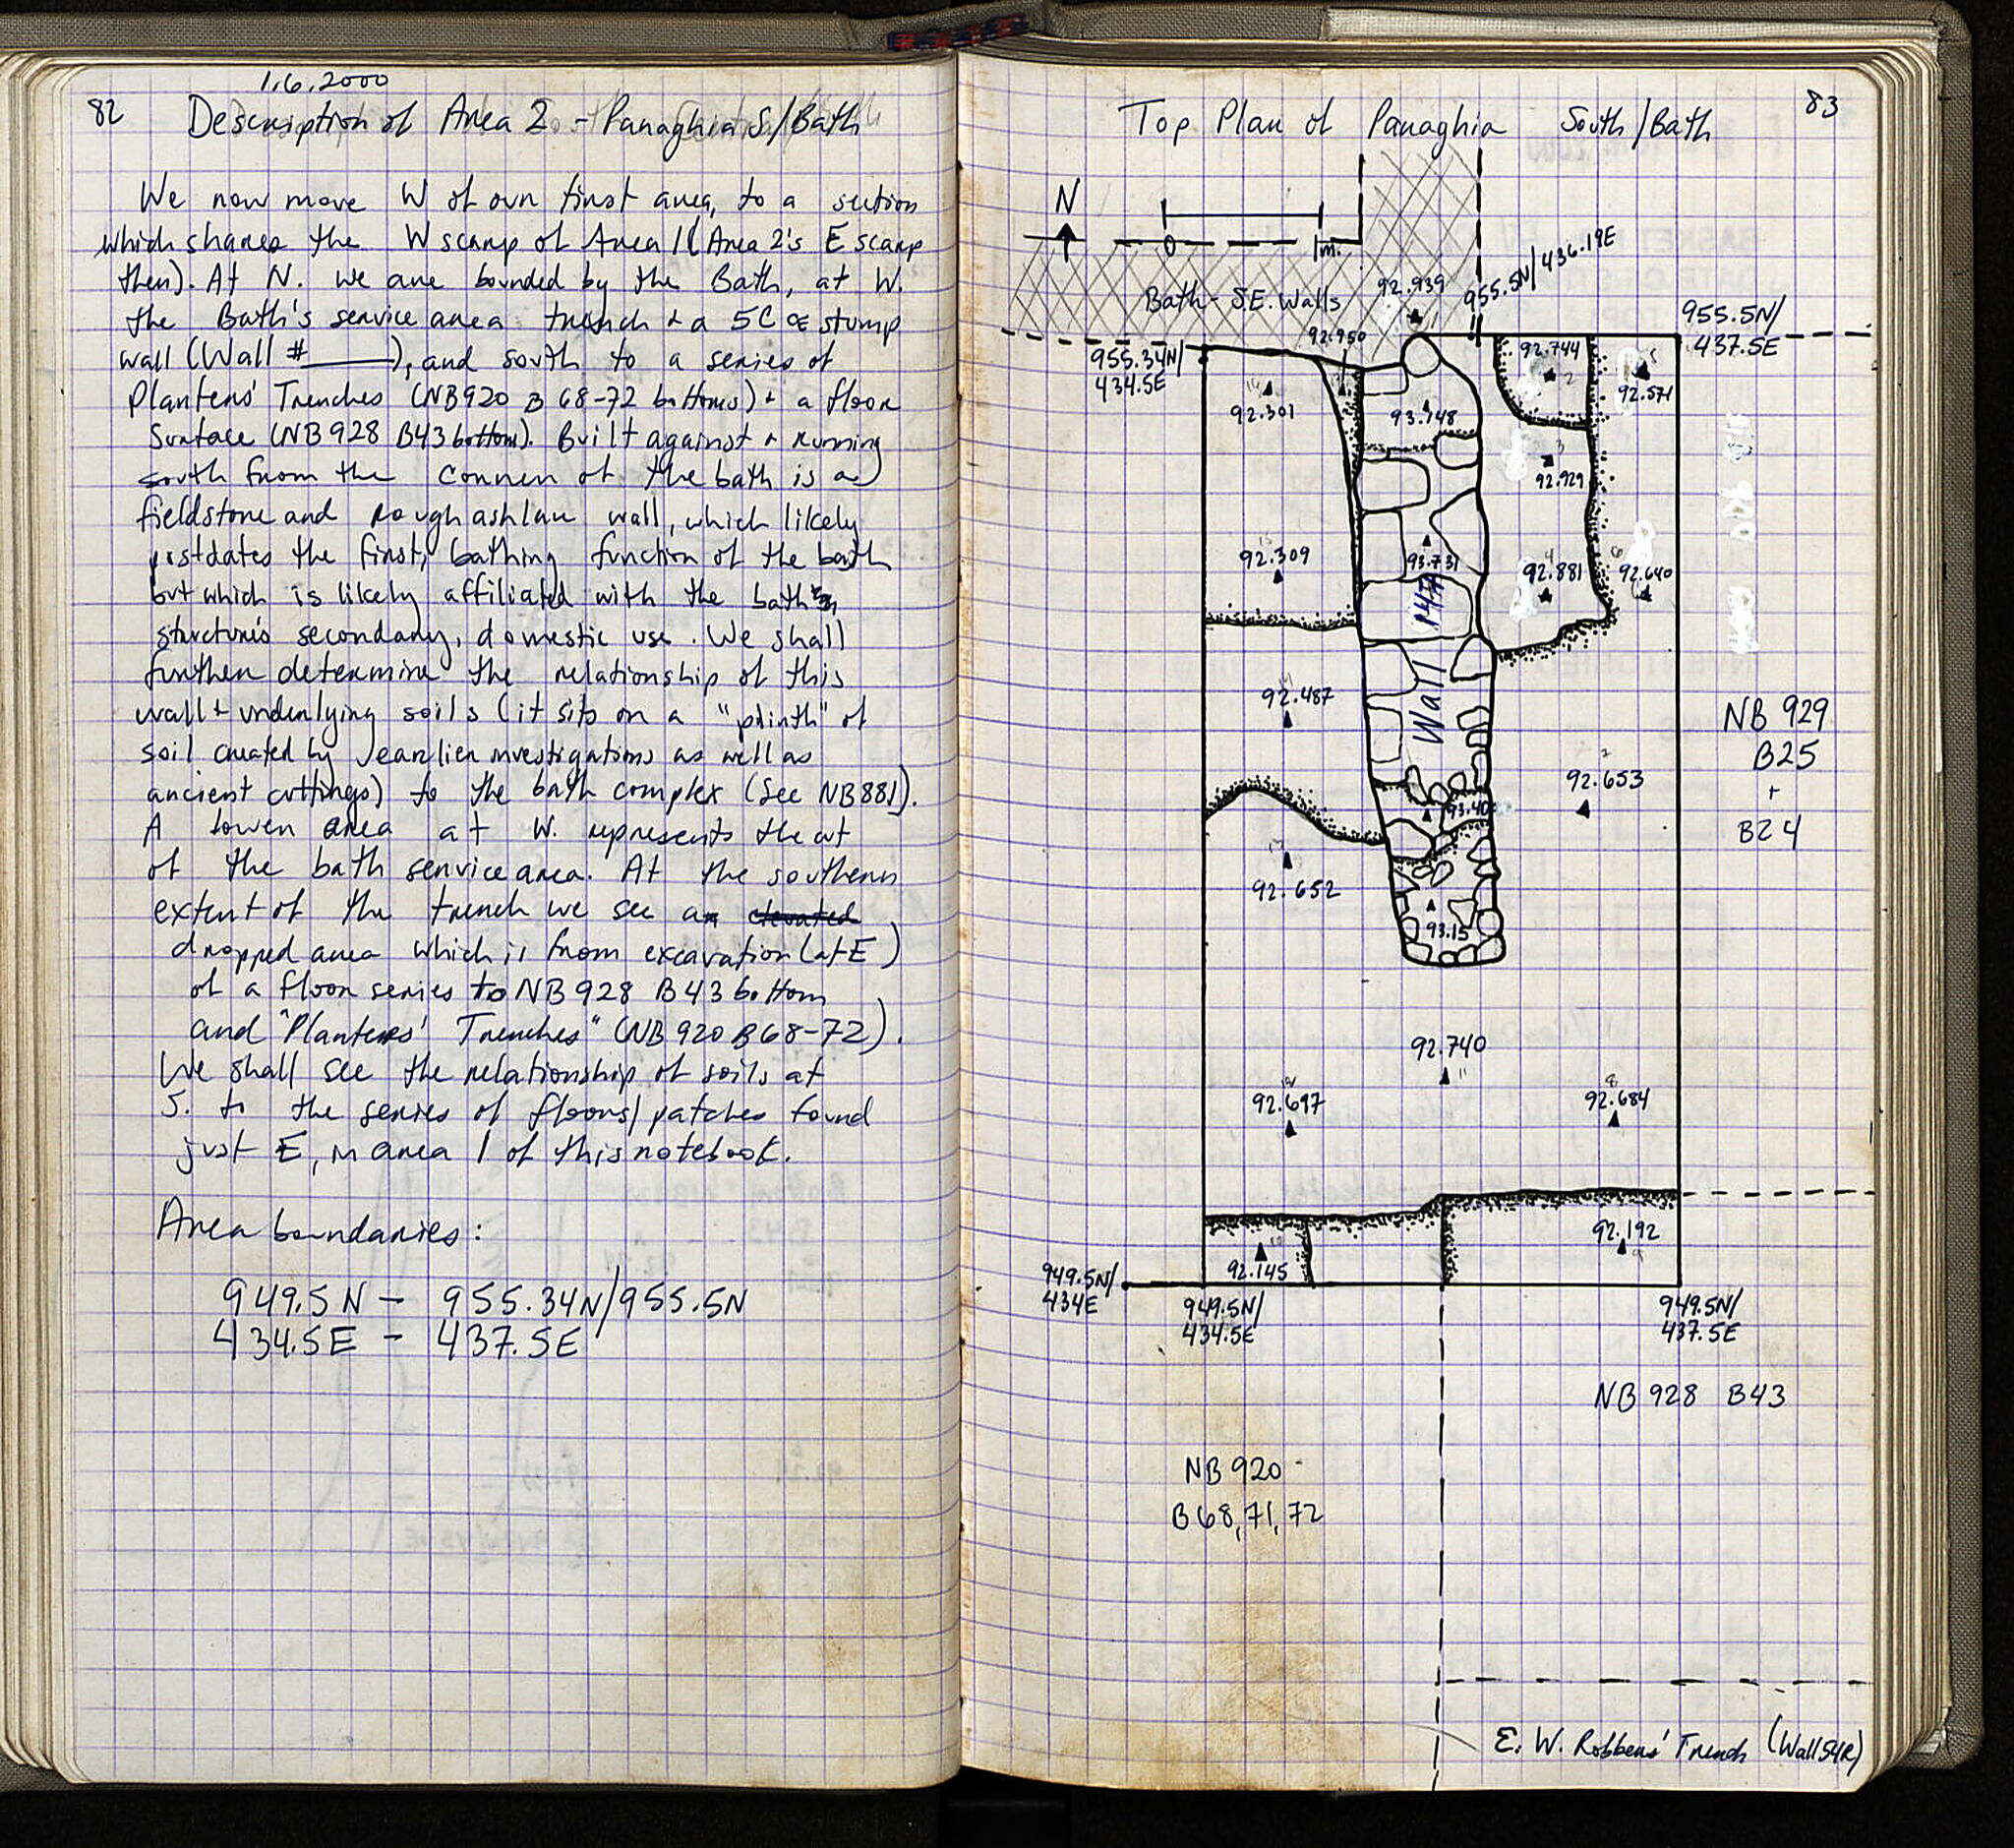 1.6.2000
82 Description of Area 2 - Panaghia S/Bath
We now move W of our first area, to a section
which shares the W scarp of Area 1 (Area 2's E scarp
then). At N. we are bounded by the Bath, at W.
the Bath's service area trench + a 5C stump
wall (Wall #____), and south to a series of
Planters' Trenches (NB920 B 68-72 bottoms) + a floor
Surface (NB 928 B43 bottom). Built against + running
south from the corner of the bath is a
fieldstone and rough ashlar wall, which likely
postdates the first, bathing function of the bath
but which is likely affiliated with the bath's
structure's secondary, domestic use. We shall
further determine the relationship of this
wall + underlying soils (it sits on a "plinth" of
soil created by earlier investigations as well as
ancient cuttings) to the bath complex (See NB881).
A lower area at W. represents the cut
of the bath service area. At the southern
extent of the trench we see a elevated
dropped area which is from excavation (at E)
of a floor series to NB928 B43 bottom
and "Planters' Trenches" (NB 920 B68-72).
We shall see the relationship of soils at
S. to the series of floors/patches found
just E, in area 1 of this notebook.
Area boundaries:
949.5N - 955.34N/955.5N
434.5E - 437.5E
Top Plan of Panaghia South/Bath 83
N
0 1m.
Bath - S.E. Walls
92.939
955.5N/436.19E
955.5N/
437.5E
92.950
955.34N/
434.5E
92.744
2
92.571
92.301
93.148
3
92.929
92.309
93.731
92.881
92.640
Wall 147
92.487
NB 929
B25
+
B24
92.653
93.40
92.652
93.15
92.740
11
92.697
8
92.684
92.192
9
10
92.145
949.5N/
434E
949.5N/
434.5E
949.5N/
437.5E
NB 928 B43
NB 920
B68,71,72
E. W. Robbers' Trench (Wall 54R)